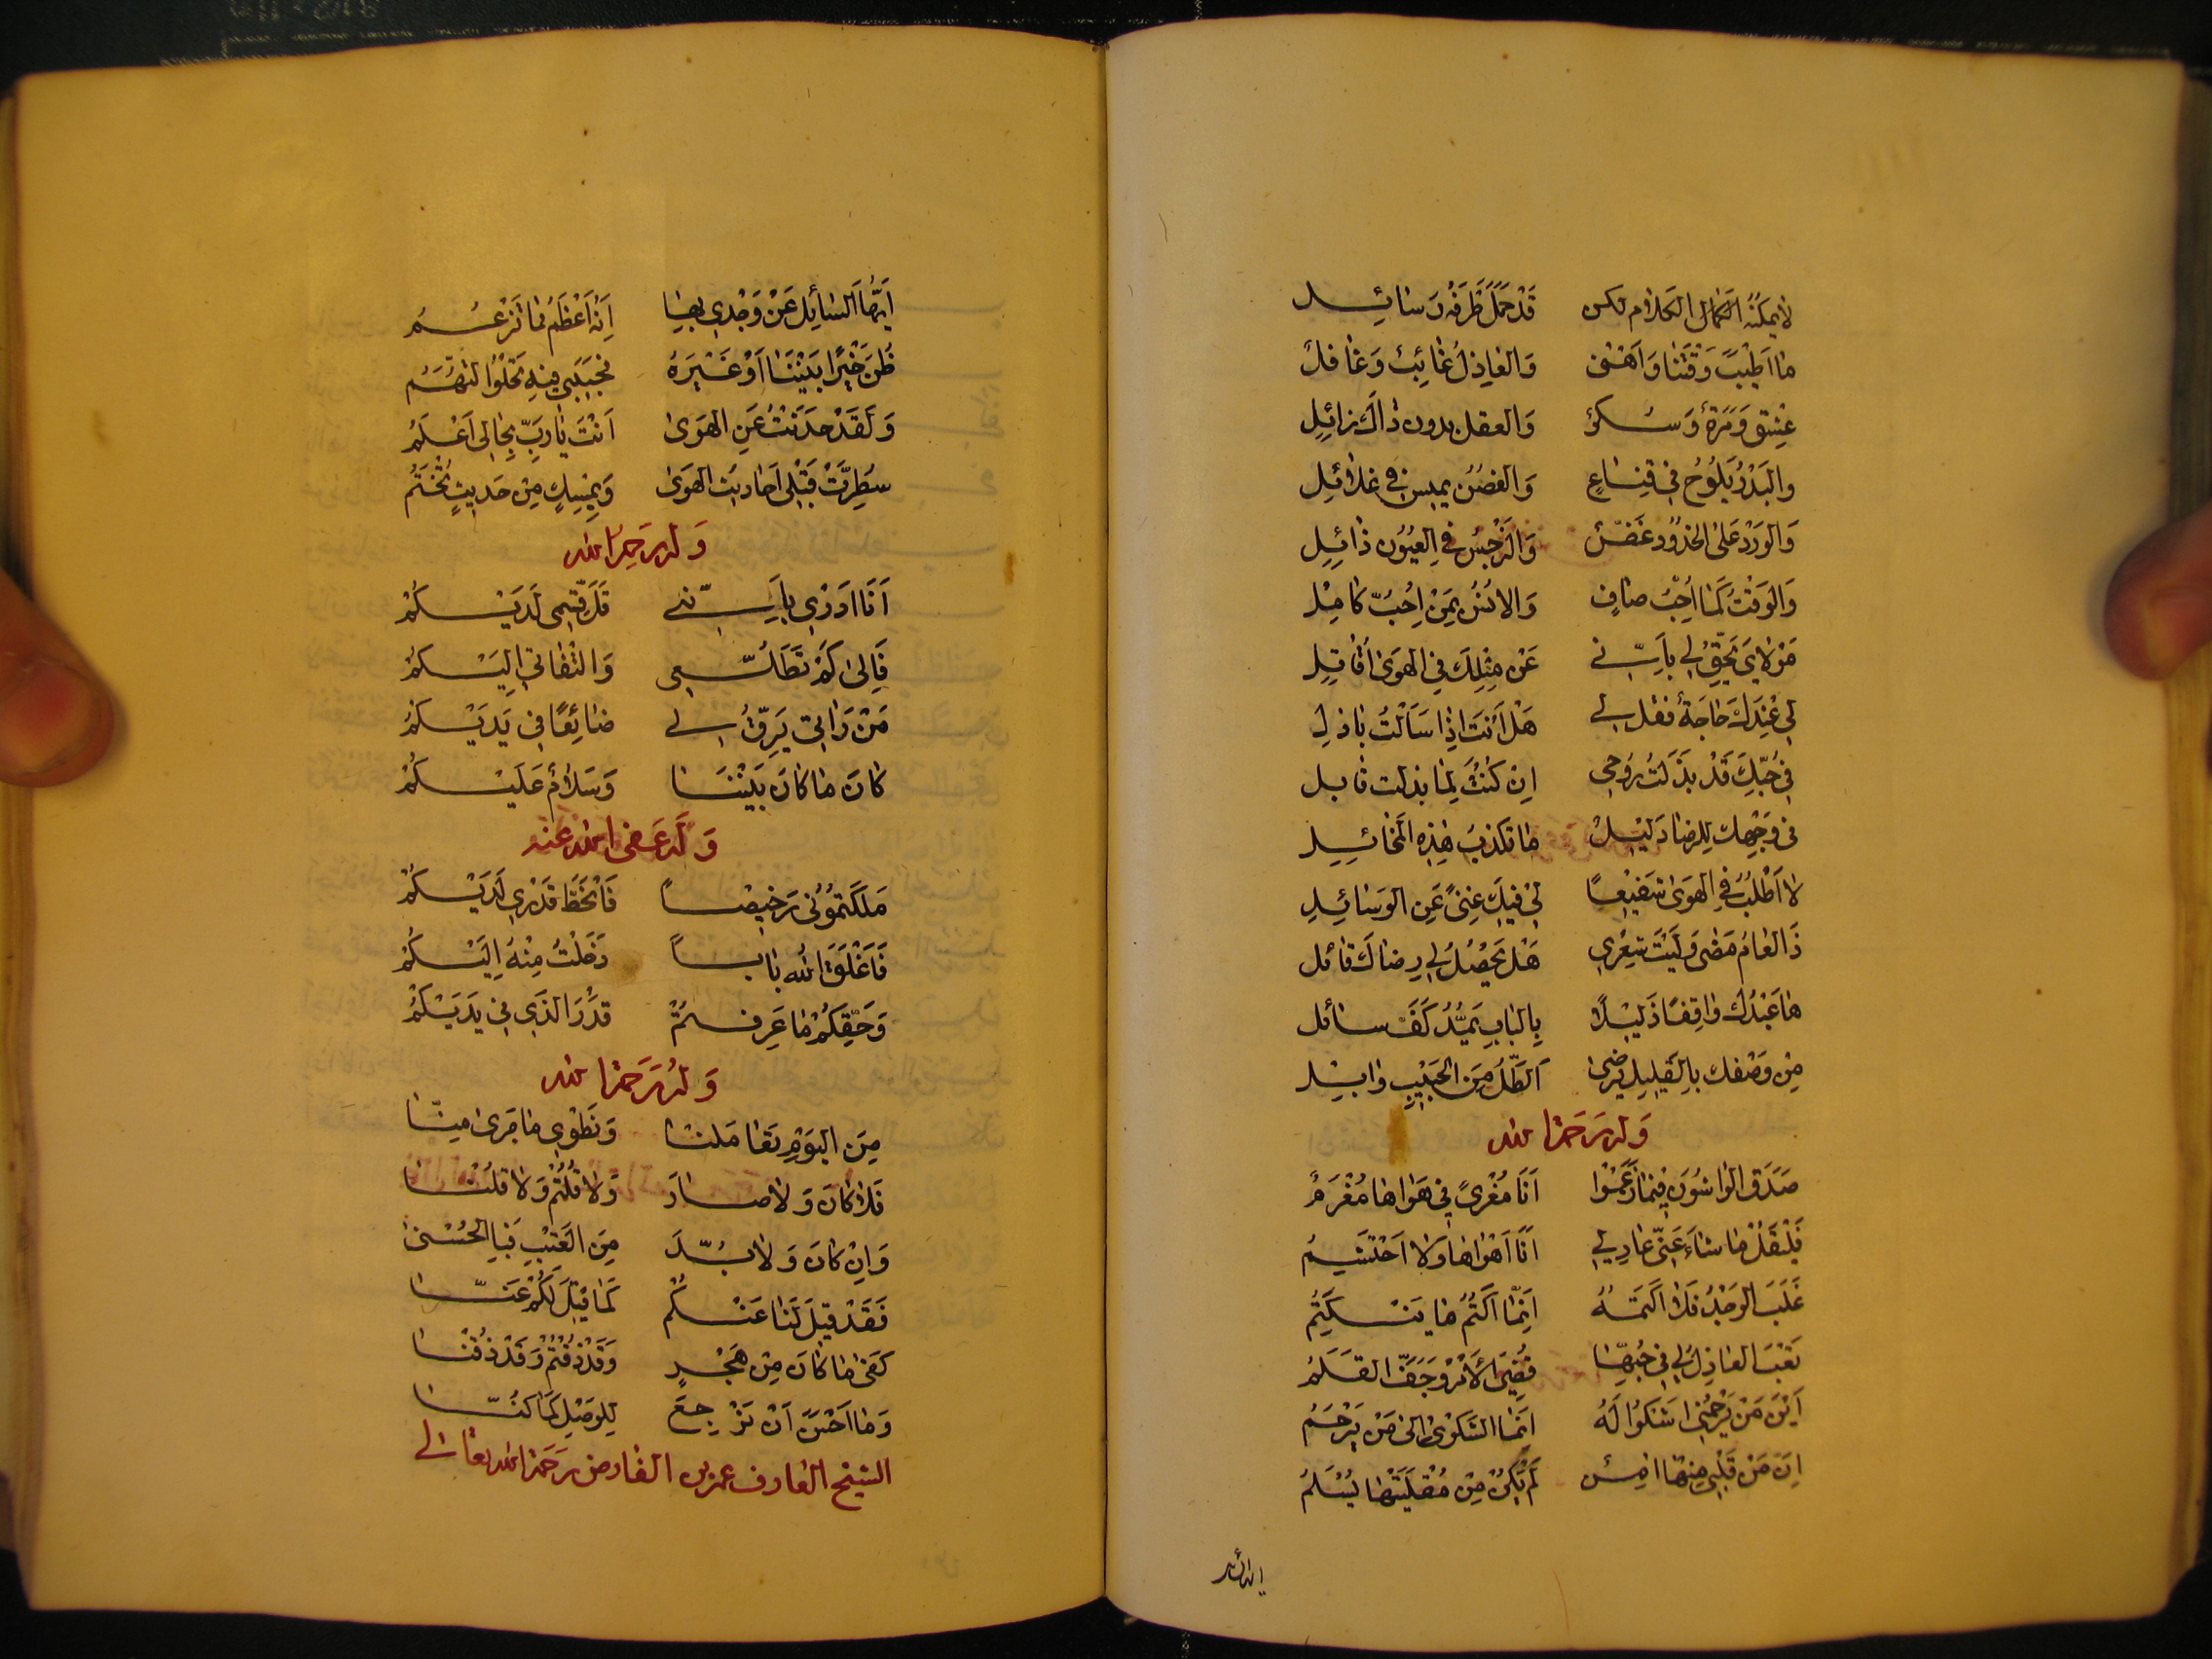 لا يمكنه الكلام لكن قد حمل طرفه رسائل
ما اطيب وقتنا واهنى والعاذل غائب وغافل
عشق ومسرة وسكر والعقل بدون ذاك زائل
والبدر يلوح في قناع والغصن يميس في غلائل
والورد على الخدود غض والنرجس في العيون ذابل
والوقت كما أحب صاف والانس بمن احب كامل
مولاي يحق لي بانني عن مثلك في الهوى اقاتل
لي عندك حاجة فقل لي هل انت اذا سالت باذل
في حبك قد بذلت روحي ان كنت لما بذلت قابل
في وجهك للرضا دليل ما تكذب هذه المخائل
لا اطلب في الهوى شفيعا لي فيك غنى عن الوسائل
ذا العام مضى وليت شعري هل يحصل لي رضاك قابل
ها عبدك واقفا ذليلا بالباب يمد كف سائل
من وصفك بالقليل يرضى الطل من الحبيب وابل
وله رحمه الله
صدق الواشون فيما زعموا انا مغرى في هواها مغرم
فليقل ما شاء عني عاذلي انا اهواها ولا احتشم
غلب الوجد فلا اكتمه انما اكتم ما ينكتم
تعب العاذل لي في حبها قضي الأمر وجف القلم
أين من يرحمني اشكو له انما الشكوى الى من يرحم
ان من قلبي منها امن لم يكن من مقلتيها يسلم
ايها السائل
ايها السائل عن وجدي بها انه اعظم مما تزعم
ظن خيرا بيننا او غيره فحبيبي فيه تحلو التهم
ولقد حدثت عن الهوى انت يا رب بحالي اعلم
سطرت قبلي احاديث الهوى وبمسك من حديث تختم
وله رحمه الله
انا ادري بانني قل قسمي لديكم
فالى كم تطلعي والتفاتي اليكم
من راني يرق لي ضائعا في يديكم
كان ما كان بيننا وسلام عليكم
وله عفى الله عنه
ملكتموني رخيصا فانحط قدري لديكم
فاغلق الله بابا دخلت منه اليكم
وحقكم ما عرفتم قدر الذي في يديكم
وله رحمه الله
من اليوم تعاملنا ونطوي ما جرى منا
فلا كان ولا صار ولا قلتم ولا قلنا
وان كان ولا بد من العتب فبالحسنى
فقد قيل لنا عنكم كما قيل لكم عنا
كفى ما كان من هجر وقد ذقتم وقد ذقنا
وما احسن ان نرجع للوصل كما كنا
الشيخ العارف عمر بن الفارض رحمه الله تعالى